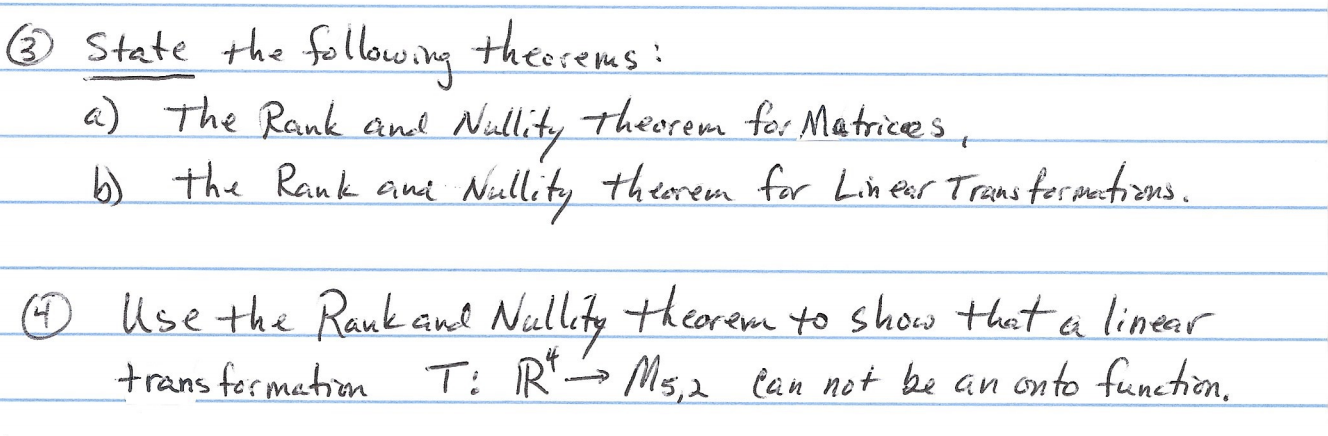 ③ State the following theorems:
a) The Rank and Nullity Theorem for Matrices,
b) the Rank and Nullity theorem for Linear Transformations.
④ Use the Rank and Nullity theorem to show that a linear
transformation T: ℝ⁴ → M₅,₂ can not be an onto function.